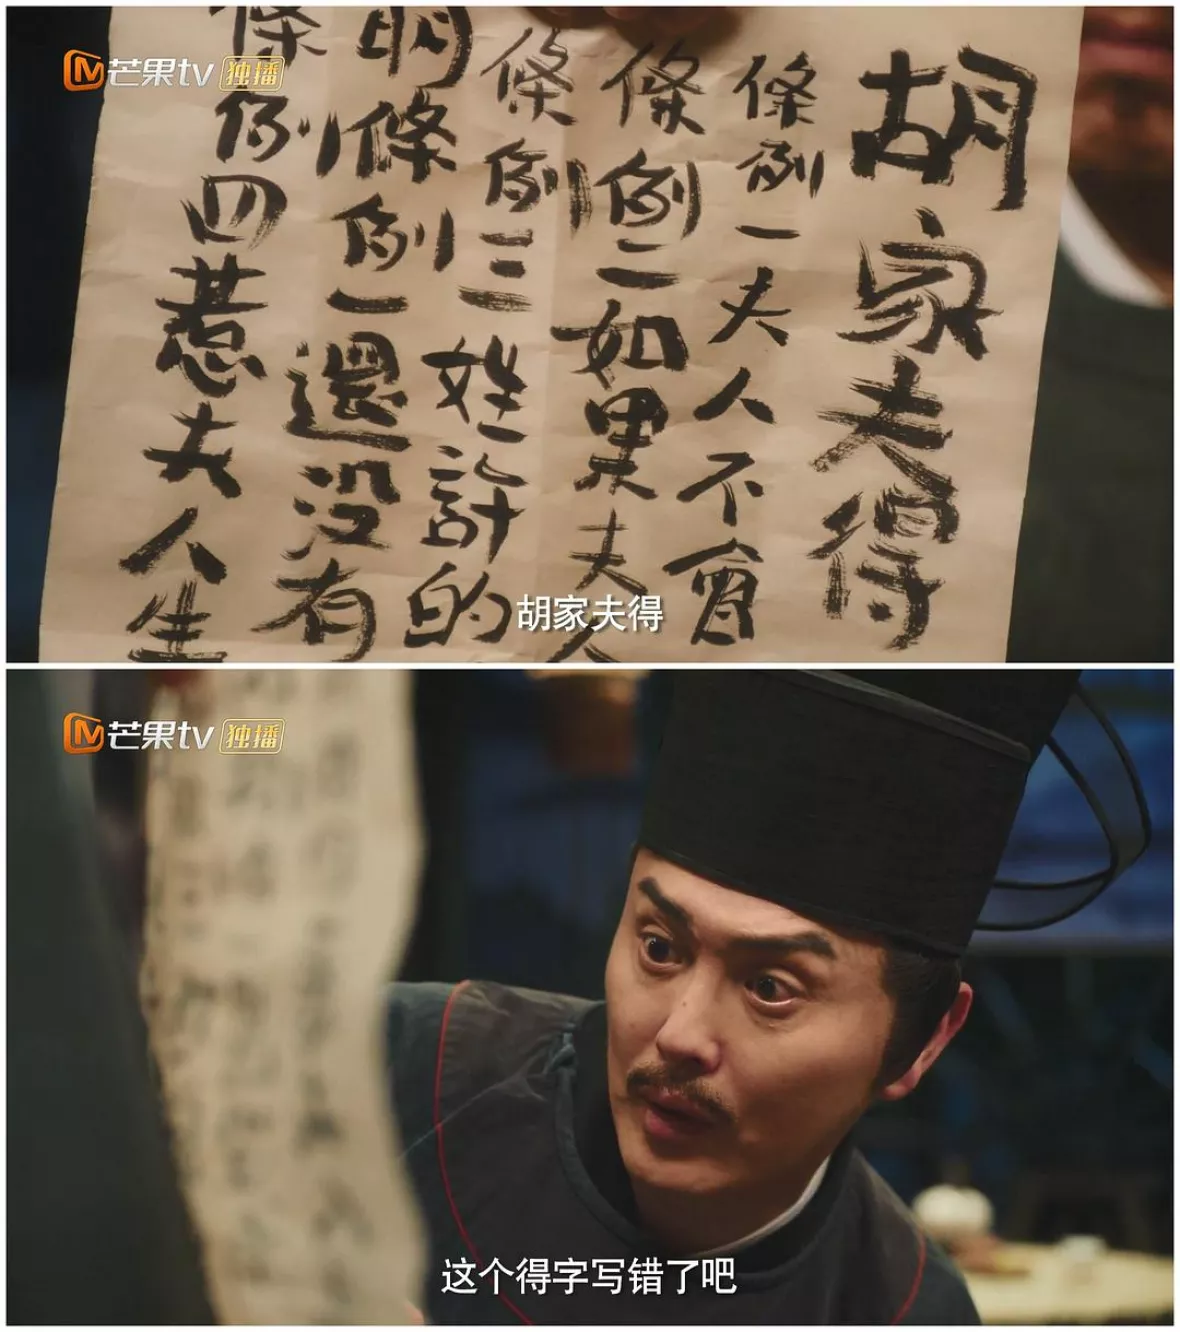 芒果tv 独播
胡家夫得
條例一夫人不會
條例二如果夫人
條例三姓計的
明條例一還没有
條例四惹夫人生
胡家夫得
芒果tv 独播
这个得字写错了吧